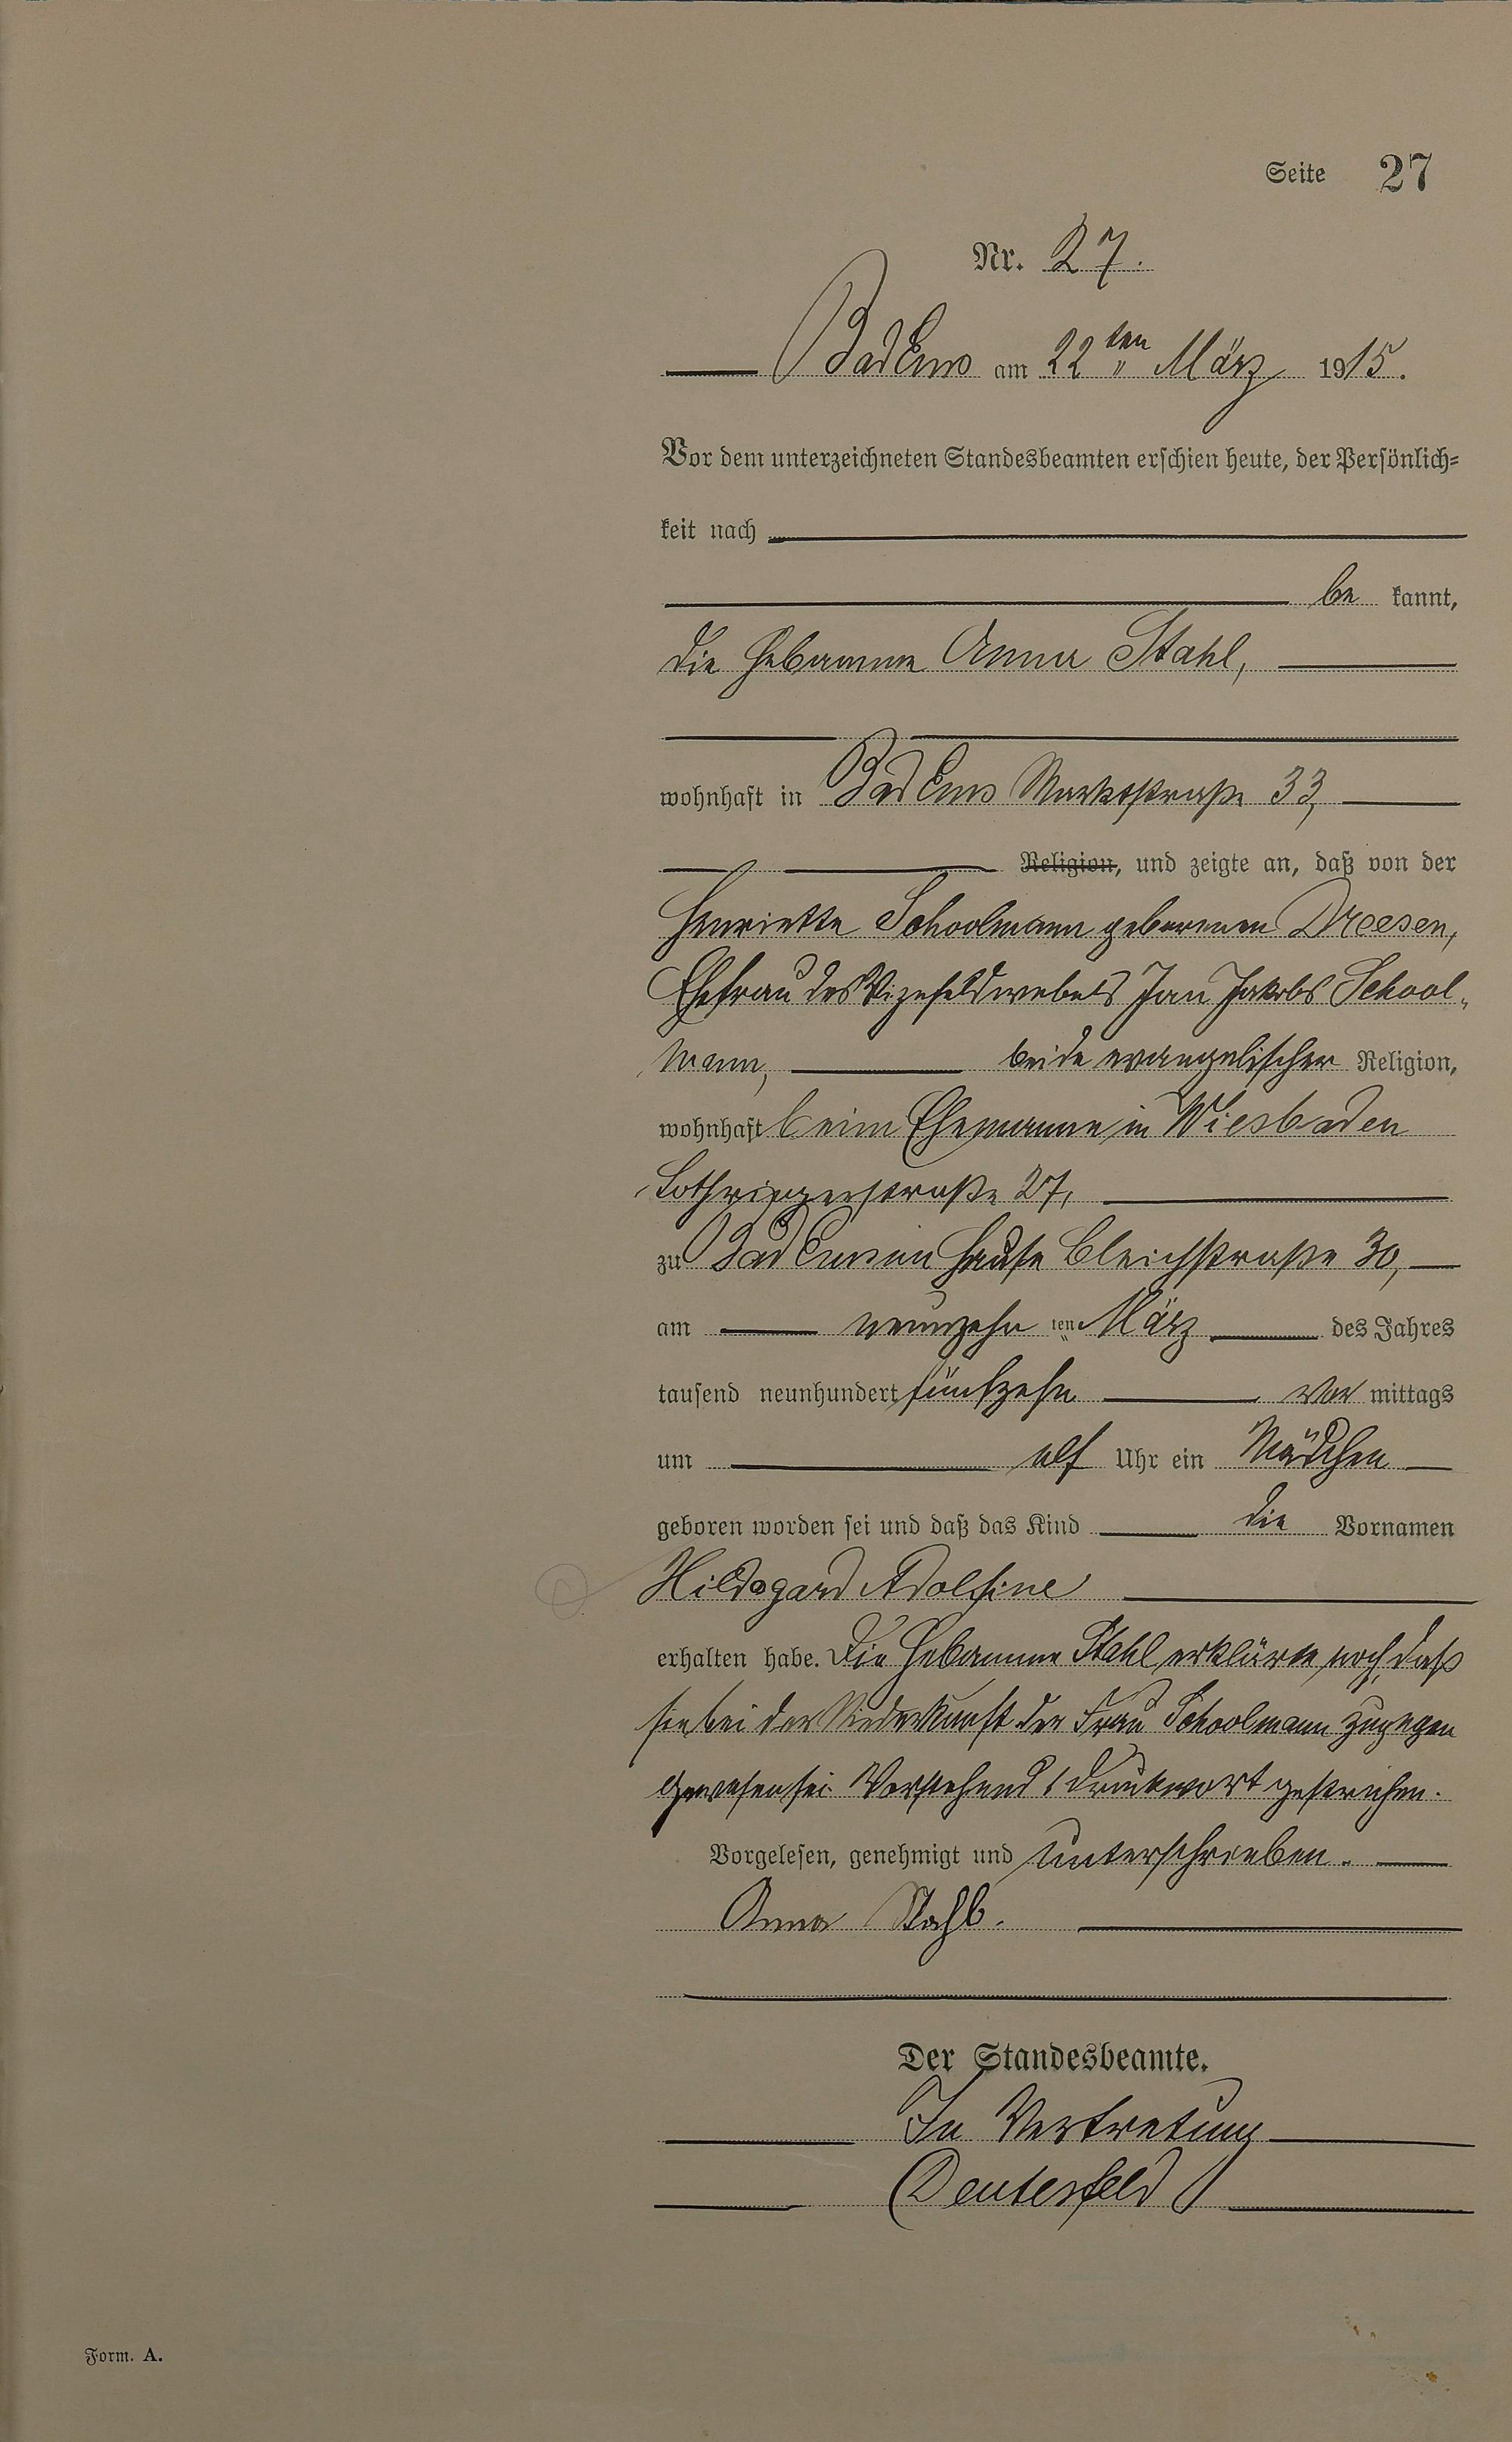 Seite 27
Nr. 27.
Bad Ems am 22ten März 1915.
Vor dem unterzeichneten Standesbeamten erschien heute, der Persönlich-
keit nach
be kannt,
die Hebamme Anna Stahl,
wohnhaft in Bad Ems Marktstraße 33,
Religion, und zeigte an, daß von der
Henriette Schoolmann geborenen Dreesen,
Ehefrau des Vizefeldwebels Jan Jakobs School-
mann, beide evangelischer Religion,
wohnhaft beim Ehemanne in Wiesbaden
Lothringerstraße 27,
zu Bad Ems im Hause Bleichstraße 30,
am neunzehn ten März des Jahres
tausend neunhundert fünfzehn vor mittags
um elf Uhr ein Mädchen
geboren worden sei und daß das Kind die Vornamen
Hildegard Adolfine
erhalten habe. Die Hebamme Stahl erklärte noch, daß
sie bei der Niederkunft der Frau Schoolmann zugegen
gewesen sei. Vorstehend 1 Druckwort gestrichen.
Vorgelesen, genehmigt und unterschrieben.
Anna Stahl.
Der Standesbeamte.
In Vertretung
Deutesfeld
Form. A.